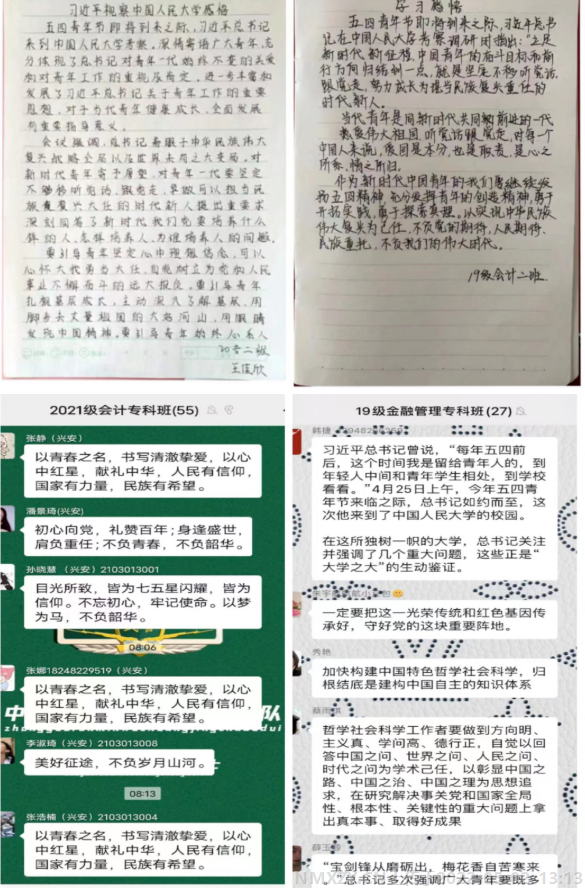 习近平视察中国人民大学感悟
五四青年节即将到来之际，习近平总书记
来到中国人民大学考察，深情寄语广大青年，充
分体现了总书记对青年一代始终不变的关爱
和对青年工作的重视与肯定，进一步丰富和
发展了习近平总书记关于青年工作的重要
思想，对于当代青年健康成长、全面发展
有重要指导意义。
会议强调，总书记着眼于中华民族伟大
复兴战略全局以及世界未有之大变局，对
新时代青年寄予厚望，对青年一代要坚定
不移听党话、跟党走，早做可以担当民
族复兴大任的时代新人提出重要求
深刻回答了新时代我们党要培养什么
样的人、怎样培养人、为谁培养人的问题。
要引导青年坚定心中理想信念，可以
心怀大我勇当大任，自觉树立为党和人民
事业不懈奋斗的远大报负。要引导青年
扎根基层成长，主动深入了解基层，用
脚步去丈量祖国的大好河山，用眼睛
发现中国精神。要引导青年始终心系人
20音二班
王俊欣
学习感悟
五四青年节即将到来之际，习近平总书
记在中国人民大学考察调研时指出：“立足
新时代新征程，中国青年的奋斗目标和前
行方向归结到一点，就是坚定不移听党话，
跟党走，努力成长为堪当民族复兴重任的
时代新人。
当代青年是同新时代共同前进的一代
热爱伟大祖国，听党话跟党走，对每一个
中国人来说，爱国是本分，也是职责，是心之
所系，情之所归。
作为新时代中国青年的我们要继续发
扬五四精神，充分发挥青年的创造精神，勇于
开拓实践，勇于探索真理。以实现中华民族
伟大复兴为己任，不负党的期待，人民期待、
民族重托，不负我们的伟大时代。
19级会计二班
2021级会计专科班(55)
张静（兴安）
以青春之名，书写清澈挚爱，以心
中红星，献礼中华，人民有信仰，
国家有力量，民族有希望。
潘景琦(兴安)
初心向党，礼赞百年；身逢盛世，
肩负重任；不负青春，不负韶华。
孙晓慧（兴安）2103013001
目光所致，皆为七五星闪耀，皆为
信仰。不忘初心，牢记使命。以梦
为马，不负韶华。
08:06
张娜18248229519（兴安）
以青春之名，书写清澈挚爱，以心
中红星，献礼中华，人民有信仰，
国家有力量，民族有希望。
李淑琦（兴安）2103013008
美好征途，不负岁月山河。
08:13
张浩楠（兴安）2103013004
以青春之名，书写清澈挚爱，以心
中红星，献礼中华，人民有信仰，
国家有力量，民族有希望。
19级金融管理专科班(27)
韩捷
习近平总书记曾说，“每年五四前
后，这个时间我是留给青年人的，到
年轻人中间和青年学生相处，到学校
看看。”4月25日上午，今年五四青
年节来临之际，总书记如约而至，这
次他来到了中国人民大学的校园。
在这所独树一帜的大学，总书记关注
并强调了几个重大问题，这些正是“
大学之大”的生动鉴证。
一定要把这一光荣传统和红色基因传
承好，守好党的这块重要阵地。
秀艳
加快构建中国特色哲学社会科学，归
根结底是建构中国自主的知识体系
哲学社会科学工作者要做到方向明、
主义真、学问高、德行正，自觉以回
答中国之问、世界之问、人民之问、
时代之问为学术己任，以彰显中国之
路、中国之治、中国之理为思想追
求，在研究解决事关党和国家全局
性、根本性、关键性的重大问题上拿
出真本事、取得好成果
“宝剑锋从磨砺出，梅花香自苦寒来
”总书记多次强调广大青年要既多